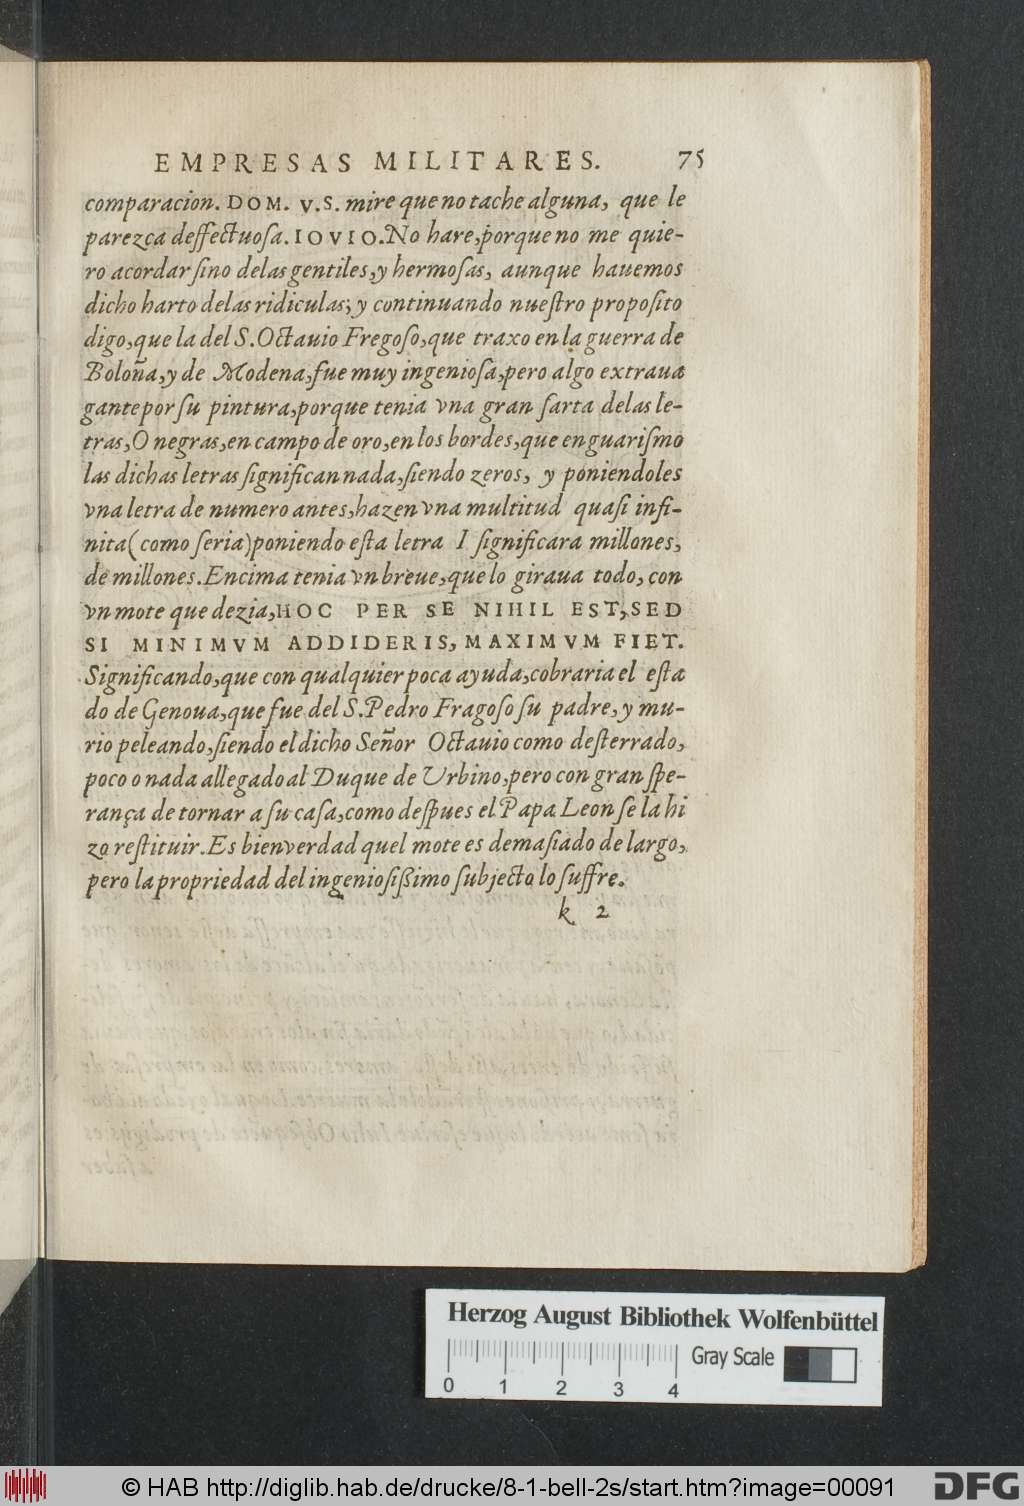 EMPRESAS MILITARES. 75
comparacion. DOM. V.S. mire que no tache alguna, que le
parezca deffectuoſa. IOVIO. No hare, porque no me quie-
ro acordar ſino delas gentiles, y hermoſas, aunque hauemos
dicho harto delas ridiculas; y continuando nueſtro propoſito
digo, que la del S. Octauio Fregoſo, que traxo en la guerra de
Boloña, y de Modena, fue muy ingenioſa, pero algo extraua
gante por ſu pintura, porque tenia vna gran ſarta delas le-
tras, O negras, en campo de oro, en los bordes, que en guariſmo
las dichas letras ſignifican nada, ſiendo zeros, y poniendoles
vna letra de numero antes, hazen vna multitud quaſi infi-
nita (como ſeria) poniendo eſta letra I ſignificara millones,
de millones. Encima tenia vn breue, que lo giraua todo, con
vn mote que dezia, HOC PER SE NIHIL EST, SED
SI MINIMVM ADDIDERIS, MAXIMVM FIET.
Significando, que con qualquier poca ayuda, cobraria el eſta
do de Genoua, que fue del S. Pedro Fragoſo ſu padre, y mu-
rio peleando, ſiendo el dicho Señor Octauio como deſterrado,
poco o nada allegado al Duque de Vrbino, pero con gran ſpe-
rança de tornar a ſu caſa, como deſpues el Papa Leon ſe la hi
zo reſtituir. Es bien verdad quel mote es demaſiado de largo,
pero la propriedad del ingenioſißimo ſubjecto lo ſuffre.
k 2
Herzog August Bibliothek Wolfenbüttel
Gray Scale
0 1 2 3 4
© HAB http://diglib.hab.de/drucke/8-1-bell-2s/start.htm?image=00091
DFG